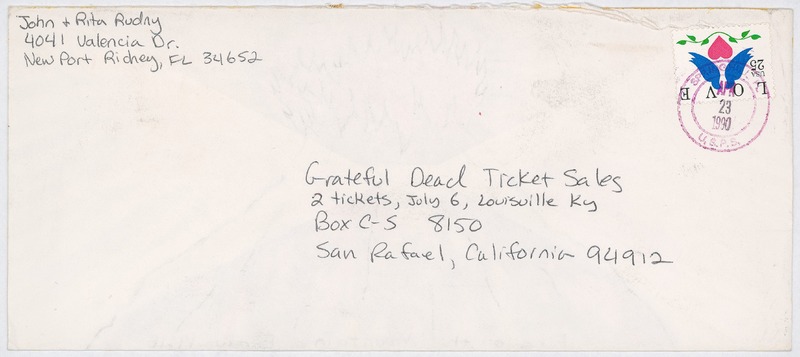 John + Rita Rudny
4041 Valencia Dr.
New Port Richey, FL 34652
USA
25
LOVE
23
1990
U.S.P.S.
Grateful Dead Ticket Sales
2 tickets, July 6, Louisville Ky
Box C-S 8150
San Rafael, California 94912